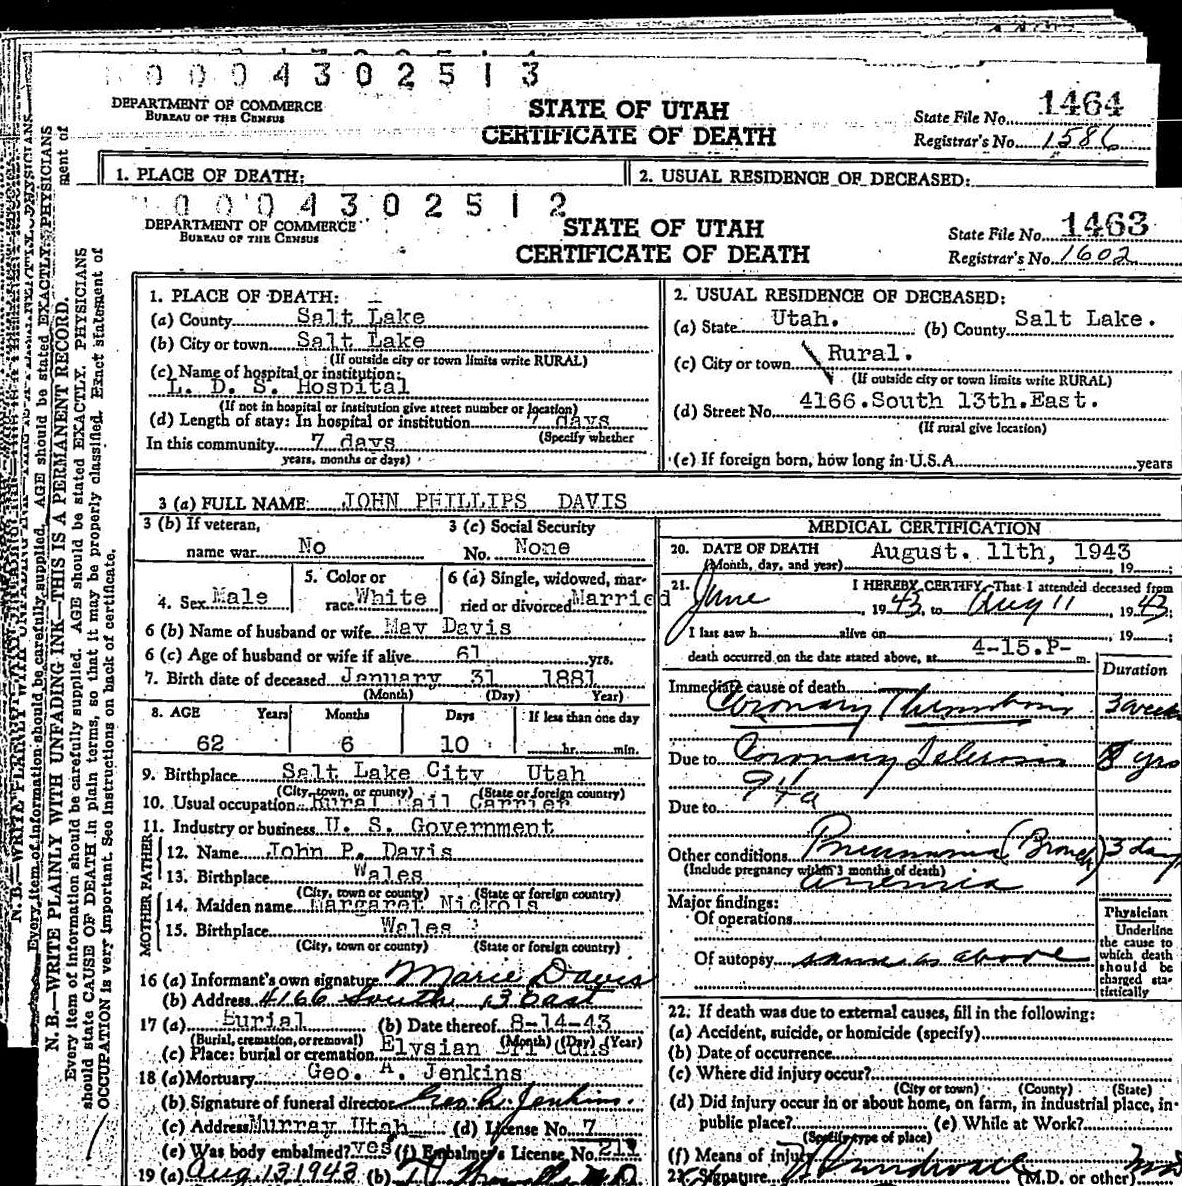 0 0 0 4 3 0 2 5 1 3
DEPARTMENT OF COMMERCE
BUREAU OF THE CENSUS
STATE OF UTAH
CERTIFICATE OF DEATH
State File No. 1464
Registrar's No. 1586
1. PLACE OF DEATH:
2. USUAL RESIDENCE OF DECEASED:
0 0 0 4 3 0 2 5 1 2
DEPARTMENT OF COMMERCE
BUREAU OF THE CENSUS
STATE OF UTAH
CERTIFICATE OF DEATH
State File No. 1463
Registrar's No. 1602
1. PLACE OF DEATH:
(a) County Salt Lake
(b) City or town Salt Lake
(If outside city or town limits write RURAL)
(c) Name of hospital or institution:
L. D. S. Hospital
(If not in hospital or institution give street number or location)
(d) Length of stay: In hospital or institution 7 days
(Specify whether
In this community 7 days
years, months or days)
2. USUAL RESIDENCE OF DECEASED:
(a) State Utah. (b) County Salt Lake.
(c) City or town Rural.
(If outside city or town limits write RURAL)
(d) Street No. 4166 South 13th.East.
(If rural give location)
(e) If foreign born, how long in U.S.A. years
3 (a) FULL NAME JOHN PHILLIPS DAVIS
3 (b) If veteran,
name war No
3 (c) Social Security
No. None
4. Sex Male
5. Color or
race White
6 (a) Single, widowed, mar-
ried or divorced Married
6 (b) Name of husband or wife May Davis
6 (c) Age of husband or wife if alive 61 yrs.
7. Birth date of deceased January 31 1881
(Month) (Day) Year)
8. AGE Years Months Days If less than one day
62 6 10 hr. min.
9. Birthplace Salt Lake City Utah
(City, town, or county) (State or foreign country)
10. Usual occupation Rural Mail Carrier
11. Industry or business U. S. Government
FATHER
12. Name John P. Davis
13. Birthplace Wales
(City, town or county) (State or foreign country)
MOTHER
14. Maiden name Margaret Nickols
15. Birthplace Wales
(City, town or county) (State or foreign country)
16 (a) Informant's own signature Marie Davis
(b) Address 4166 South 13 East
17 (a) Burial (b) Date thereof 8-14-43
(Burial, cremation, or removal) (Month) (Day) (Year)
(c) Place: burial or cremation Elysian
18 (a) Mortuary Geo. A. Jenkins
(b) Signature of funeral director Geo. A. Jenkins.
(c) Address Murray Utah (d) License No. 7
(e) Was body embalmed? yes (f) Embalmer's License No. 211
19 (a) Aug 13 1943 (b) M.D.
MEDICAL CERTIFICATION
20. DATE OF DEATH August. 11th, 1943
(Month, day, and year) , 19
21. I HEREBY CERTIFY, That I attended deceased from
June , 1943, to Aug 11 1943;
I last saw h alive on , 19 ;
death occurred on the date stated above, at 4-15.P- m.
Duration
Immediate cause of death
Coronary Thrombosis 3 weeks
Due to Coronary Sclerosis 8 yrs
94a
Due to
Other conditions Pneumonia (Bronch) 3 day
(Include pregnancy within 3 months of death)
anemia
Major findings:
Of operations
Of autopsy same as above
Physician
Underline
the cause to
which death
should be
charged sta-
tistically
22. If death was due to external causes, fill in the following:
(a) Accident, suicide, or homicide (specify)
(b) Date of occurrence
(c) Where did injury occur?
(City or town) (County) (State)
(d) Did injury occur in or about home, on farm, in industrial place, in
public place? (e) While at Work?
(Specify type of place)
(f) Means of injury
23. Signature (M.D. or other) MD
N. B.—WRITE PLAINLY WITH UNFADING INK—THIS IS A PERMANENT RECORD.
Every item of information should be carefully supplied. AGE should be stated EXACTLY. PHYSICIANS
should state CAUSE OF DEATH in plain terms, so that it may be properly classified. Exact statement of
OCCUPATION is very important. See instructions on back of certificate.